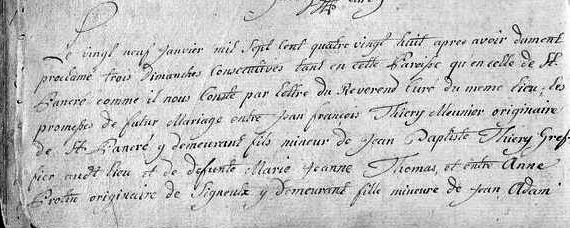 Le vingt neuf janvier mil sept cent quatre vingt huit apres avoir dument
proclamé trois Dimanches Consecutives tant en cette Paroisse qu'en celle de St
Pancré comme il nous Conste par lettre du Reverend Curé du meme lieu; les
promesses de futur Mariage entre jean françois Thiery Meunier originaire
de St Pancré y demeurant fils mineur de jean Baptiste Thiery Gref-
fier audt lieu et de defunte Marie jeanne Thomas, et entre Anne
originaire de Signeulx y demeurant fille mineure de jean Adam